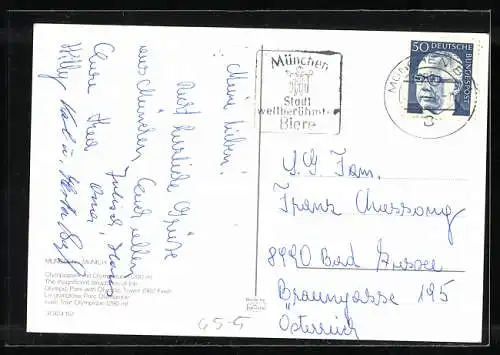 München
Stadt
weltberühmter
Biere
50 DEUTSCHE
BUNDESPOST
MÜNCHEN
Meine Lieben!
Recht herzliche Grüße
aus München Euch allen
Eure Thea
Oma,
Hilly, Karl u.
Fam.
Franz
8990 Bad Aussee
Braungasse 195
Österreich
MÜNCHEN MUNICH
Olympiapark mit Olympiaturm (290 m)
The magnificent structures of the
Olympic Park with Olympic Tower (960 Feet)
Le grandiose Parc Olympique
avec Tour Olympique (290 m)
65-5